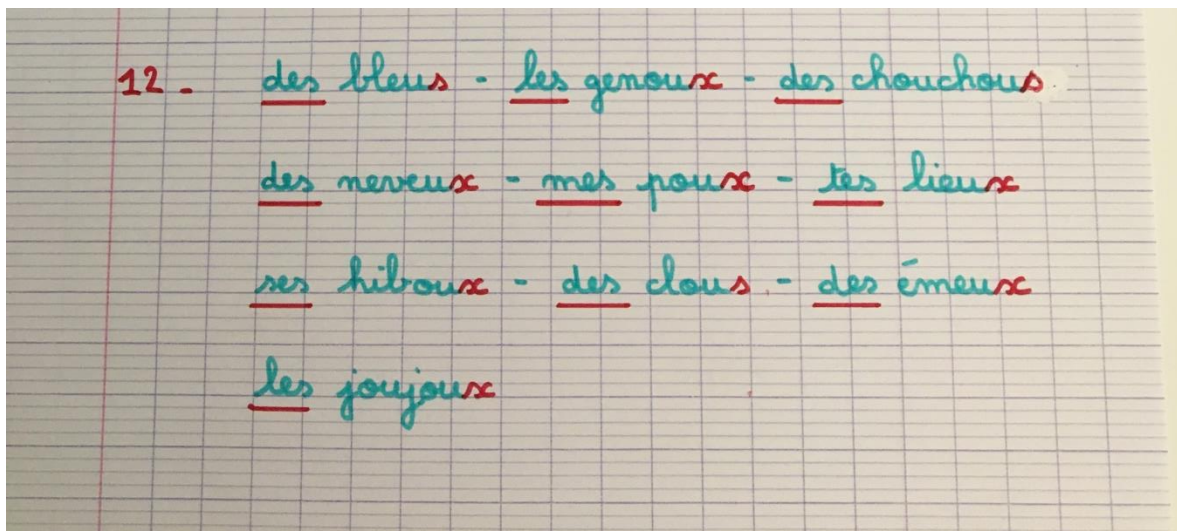 12 - des bleus - les genoux - des chouchous
des neveux - mes poux - tes lieux
ses hiboux - des clous - des émeux
les joujoux